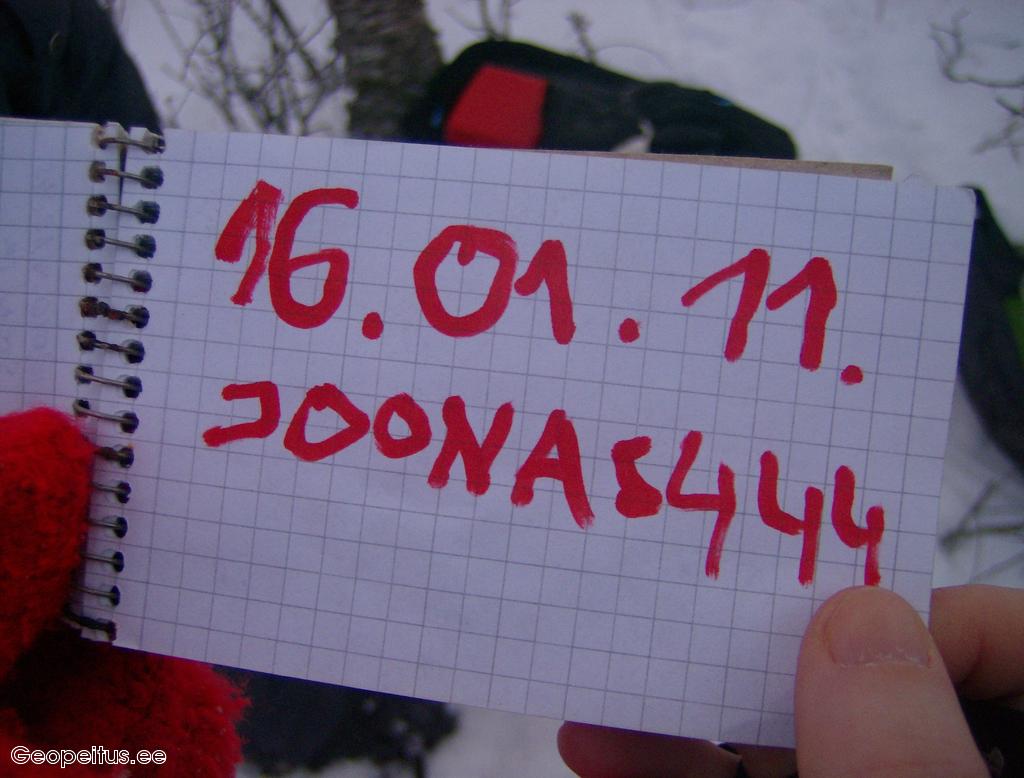 16.01.11.
JOONAS444
Geopeitus.ee